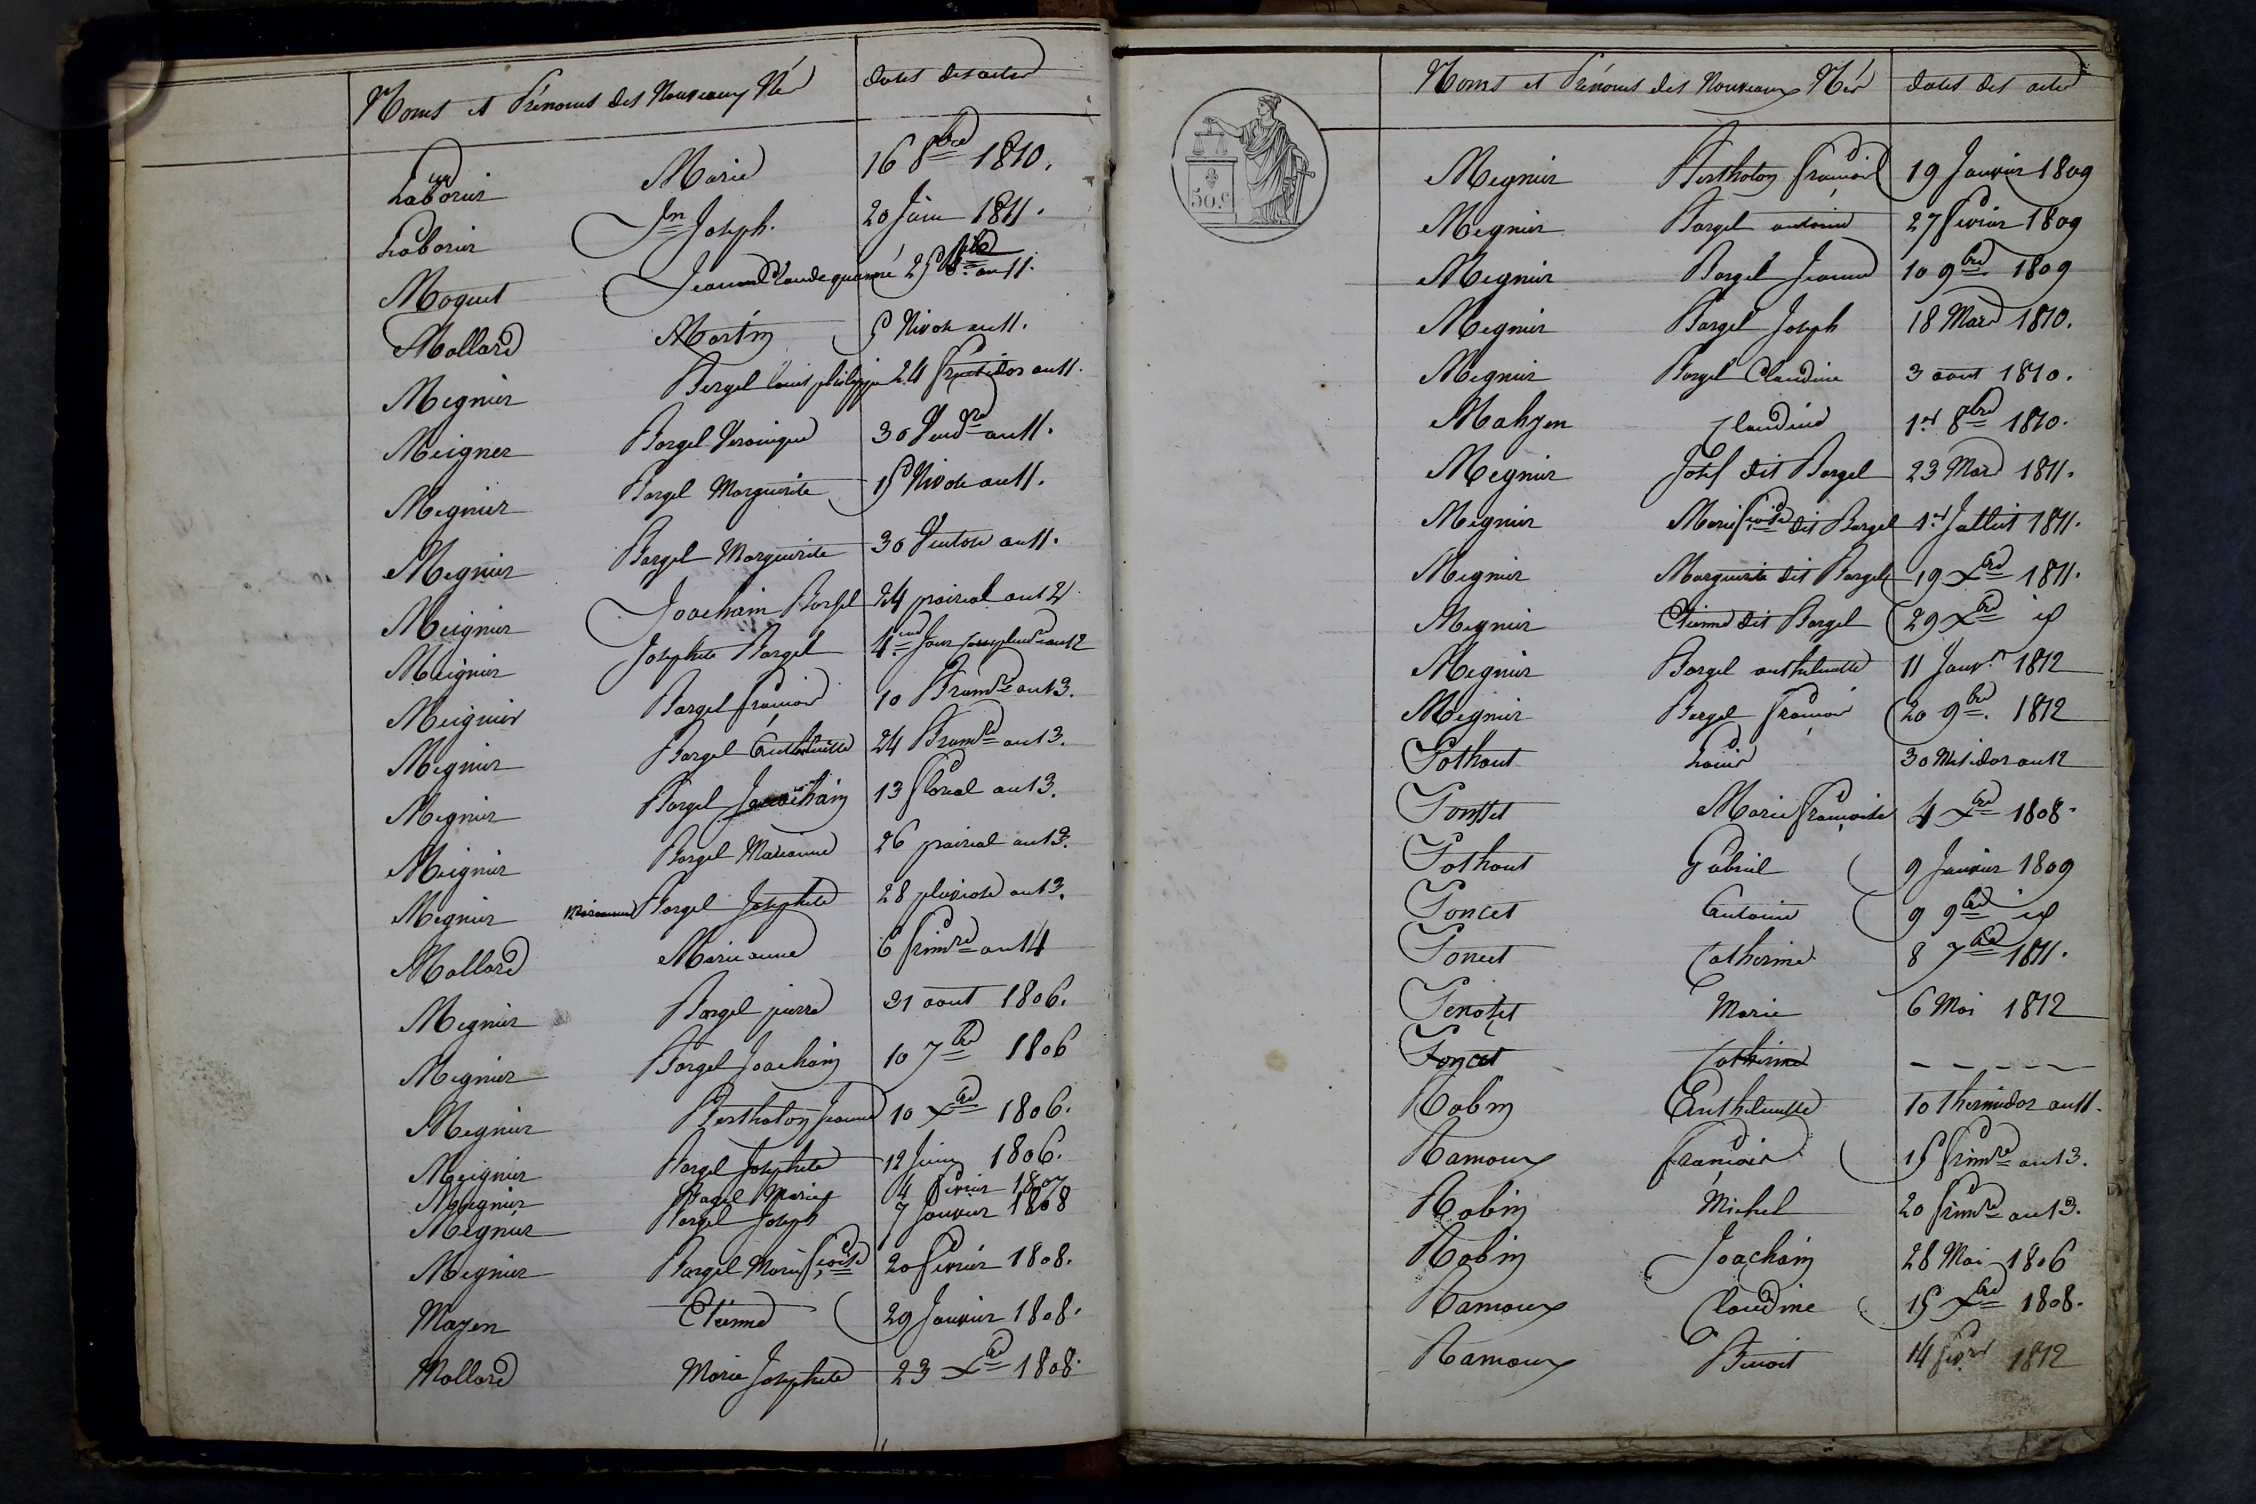 Noms et Prénoms des Nouveaux Nés dates des actes
Laborier Marie 16 8bre 1810.
Laborier Jn Joseph. 20 Juin 1811.
Moquet Jeanne Claude 25 an 11.
Mollard Martin 5 Nivose an 11.
Megnier Bergel Louis philippe 24 fructidor an 11.
Meigner Borgel Veronique 30 Vendre an 11.
Megnier Borgel Marguerite 15 Nivose an 11.
Megnier Borgel Marguerite 30 Ventose an 11.
Meignier Joachim Borgel 24 prairial an 12
Meignier Josephte Borgel 4eme Jour complre an 12
Meignier Borgel françois 10 Brumre an 13.
Megnier Borgel Anthelmette 24 Brumre an 13.
Megnier Borgel Joachim 13 floreal an 13.
Meignier Borgel Marianne 26 prairial an 13.
Megnier Marianne Borgel Josephte 28 pluviose an 13.
Mollard Marieanne 6 frimre an 14
Megnier Borgel pierre 31 aout 1806.
Megnier Borgel Joachim 10 7bre 1806
Megnier Bertholon Jeanne 10 Xbre 1806.
Meignier Borgel Josephte 12 Juin 1806.
Meignier Bagel Marie 4 fevrier 1807
Megnier Borgel Joseph 7 Janvier 1808
Megnier Borgel Marie fcoise 20 fevrier 1808.
Mayen Etienne 29 Janvier 1808.
Mollard Marie Josephte 23 Xbre 1808.
Noms et Prénoms des Nouveaux Nés dates des actes
50.c
Megnier Bertholon françois 19 Janvier 1809
Megnier Borgel antoine 27 fevrier 1809
Megnier Borgel Jeanne 10 9bre 1809
Megnier Borgel Joseph 18 Mars 1810.
Megnier Borgel Claudine 3 aout 1810.
Mahyen Claudine 1er 8bre 1810.
Megnier Josef dit Borgel 23 Mars 1811.
Megnier Marie fcoise dit Borgel 1er Juillet 1811.
Megnier Marguerite dit Borgel 19 Xbre 1811.
Megnier Etienne dit Borgel 29 Xbre id
Megnier Borgel anthelmette 11 Janvr 1812
Megnier Bergel françois 20 9bre. 1812
Pothout Louis 30 Messidor an 12
Ponsset Marie françoise 4 Xbre 1808.
Pothout Gabriel 9 Janvier 1809
Poncet Antoine 9 9bre id
Poncet Catherine 8 7bre 1811.
Marie 6 Mai 1812
Poncet Catherine - - - - -
Robin Enthelmette 10 thermidor an 11.
Ramoux françois 15 frimre an 13.
Robin Michel 20 frimre an 13.
Robin Joachim 28 Mai 1806
Ramoux Claudine 15 Xbre 1808.
Ramoux Benoit 14 1812